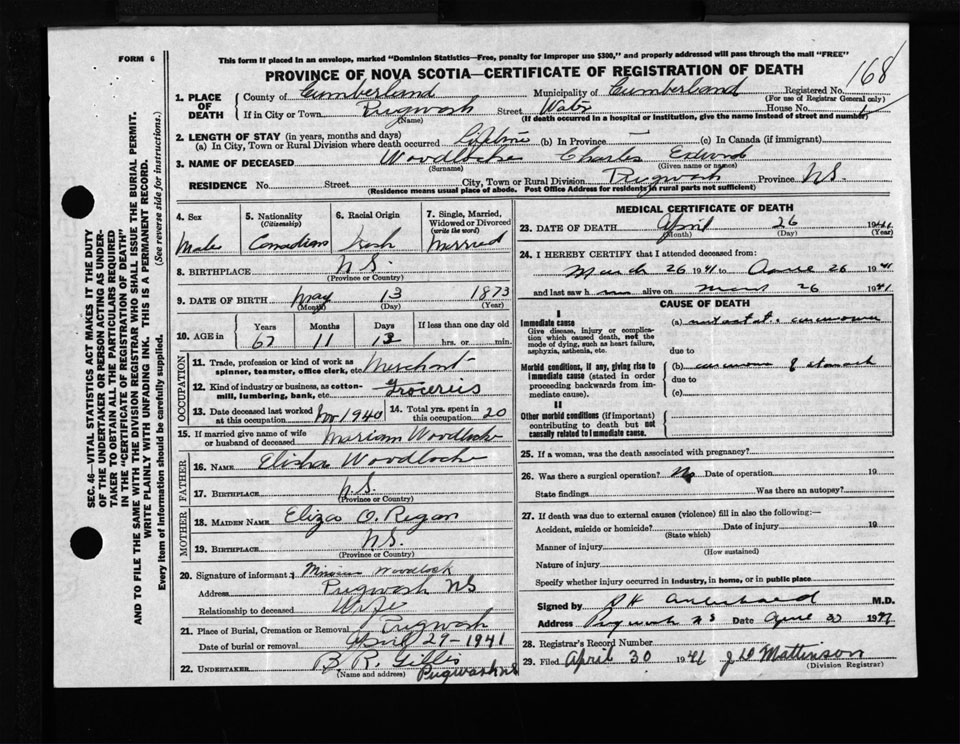 FORM 6
This form if placed in an envelope, marked "Dominion Statistics—Free, penalty for improper use $300," and properly addressed will pass through the mail "FREE"
PROVINCE OF NOVA SCOTIA—CERTIFICATE OF REGISTRATION OF DEATH
168
1. PLACE OF DEATH
County of Cumberland Municipality of Cumberland Registered No.
(For use of Registrar General only)
If in City or Town Pugwash Street Water House No.
(Name) (If death occurred in a hospital or institution, give the name instead of street and number)
2. LENGTH OF STAY (in years, months and days)
(a) In City, Town or Rural Division where death occurred Lifetime (b) In Province — (c) In Canada (if immigrant)
3. NAME OF DECEASED Woodlocke Charles Edward
(Surname) (Given name or names)
RESIDENCE No. Street City, Town or Rural Division Pugwash Province N.S.
(Residence means usual place of abode. Post Office Address for residents in rural parts not sufficient)
4. Sex Male
5. Nationality (Citizenship) Canadian
6. Racial Origin Irish
7. Single, Married, Widowed or Divorced (write the word) Married
8. BIRTHPLACE N.S.
(Province or Country)
9. DATE OF BIRTH May 13 1873
(Month) (Day) (Year)
10. AGE in Years Months Days If less than one day old
67 11 13 hrs. or min.
OCCUPATION
11. Trade, profession or kind of work as spinner, teamster, office clerk, etc. Merchant
12. Kind of industry or business, as cotton-mill, lumbering, bank, etc. Groceries
13. Date deceased last worked at this occupation Nov 1940 14. Total yrs. spent in this occupation 20
15. If married give name of wife or husband of deceased Mariam Woodlocke
FATHER
16. NAME Elisha Woodlocke
17. BIRTHPLACE N.S.
(Province or Country)
MOTHER
18. MAIDEN NAME Eliza O. Regan
19. BIRTHPLACE N.S.
(Province or Country)
20. Signature of informant Woodlock
Address Pugwash NS
Relationship to deceased Wife
21. Place of Burial, Cremation or Removal Pugwash
Date of burial or removal April 29-1941
22. UNDERTAKER B. R. Gillis
(Name and address) Pugwash NS
MEDICAL CERTIFICATE OF DEATH
23. DATE OF DEATH April 26 1941
(Month) (Day) (Year)
24. I HEREBY CERTIFY that I attended deceased from:
March 26 1941 to April 26 1941
and last saw h alive on 26 1941
CAUSE OF DEATH
I
Immediate cause
Give disease, injury or complication which caused death, not the mode of dying, such as heart failure, asphyxia, asthenia, etc.
(a)
due to
Morbid conditions, if any, giving rise to immediate cause (stated in order proceeding backwards from immediate cause).
(b) carcinoma of stomach
due to
(c)
II
Other morbid conditions (if important) contributing to death but not causally related to immediate cause.
25. If a woman, was the death associated with pregnancy?
26. Was there a surgical operation? No Date of operation 19
State findings Was there an autopsy?
27. If death was due to external causes (violence) fill in also the following:—
Accident, suicide or homicide? Date of injury 19
(State which)
Manner of injury
(How sustained)
Nature of injury
Specify whether injury occurred in industry, in home, or in public place
Signed by M.D.
Address Pugwash N S Date April
28. Registrar's Record Number
29. Filed April 30 1941 J W Mattinson
(Division Registrar)
SEC. 46—VITAL STATISTICS ACT MAKES IT THE DUTY
OF THE UNDERTAKER OR PERSON ACTING AS UNDER-
TAKER TO OBTAIN ALL THE PARTICULARS REQUIRED
IN THE "CERTIFICATE OF REGISTRATION OF DEATH"
AND TO FILE THE SAME WITH THE DIVISION REGISTRAR WHO SHALL ISSUE THE BURIAL PERMIT.
WRITE PLAINLY WITH UNFADING INK. THIS IS A PERMANENT RECORD.
Every item of information should be carefully supplied. (See reverse side for instructions.)